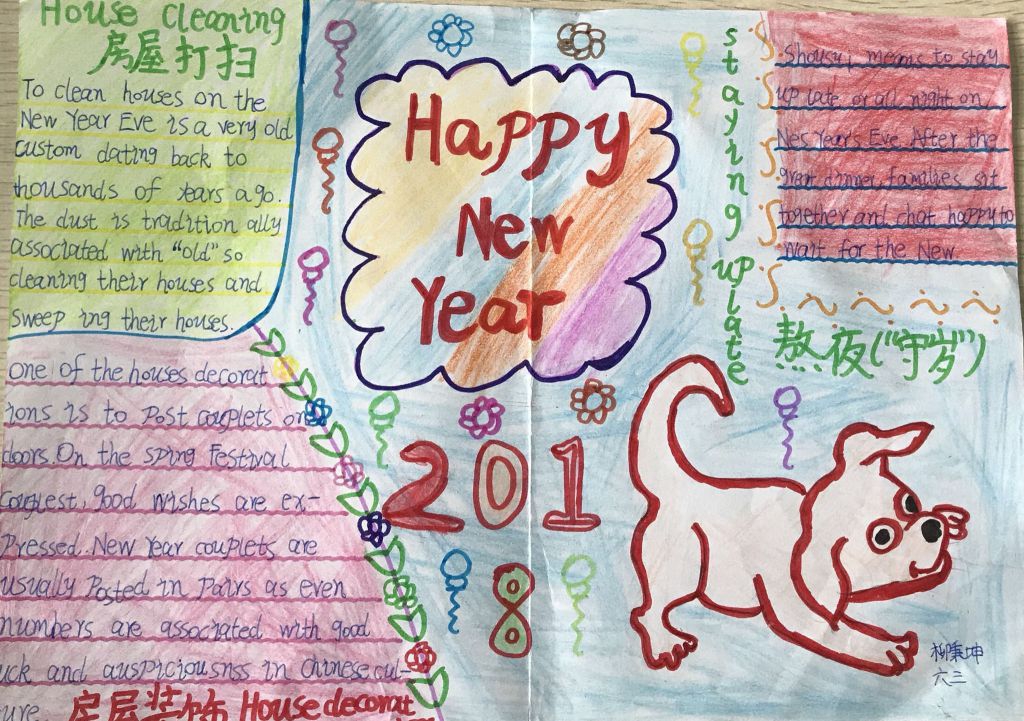 House Cleaning
房屋打扫
To clean houses on the
New Year Eve is a very old
custom dating back to
thousands of years ago.
The dust is tradition ally
associated with "old" so
cleaning their houses and
sweep ing their houses.
one of the houses decorat
ions is to post couplets on
doors. On the sping Festival
good wishes are ex-
pressed. New Year couplets are
usually Posted in pairs as even
numbers are associated with good
uck and auspiciousnss in Chinese cul-
ure.
房屋装饰 House decorat
Happy
New
Year
2018
staying up late
shousui means to stay
up late or all night on
Nes Year's Eve. After the
dinner, families sit
together and chat happy to
wait for the New
熬夜("守岁")
柳秉坤
六三